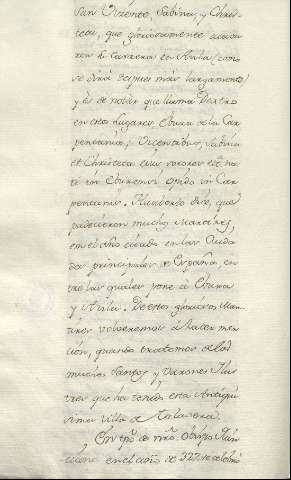 San Vizente, Sabina, y Chris-
teta, que gloriosamente acava-
ron su carrera en Avila (como
se dirá despues mas largamente)
y és de notar que llama Dextro
en estos lugares Ebura de la Car-
pentania; Vicentius, Sabina
et Christeta eius sorores
in Eburensi opido in Car-
pentania. Humberto dize, que
padecieron muchos Martires,
en el año citado en las Ciuda-
des principales de España, en-
tre las quales pone á Ebura
y Avila. De estos gloriosos Mar-
tires volveremos á hacer men-
cion, quando tratemos de los
muchos Santos y Varones Ilus-
tres que ha tenido esta Antiqui-
sima Villa de Talavera.
En tpo. de nro. obispo
en el año de 327 se celebró